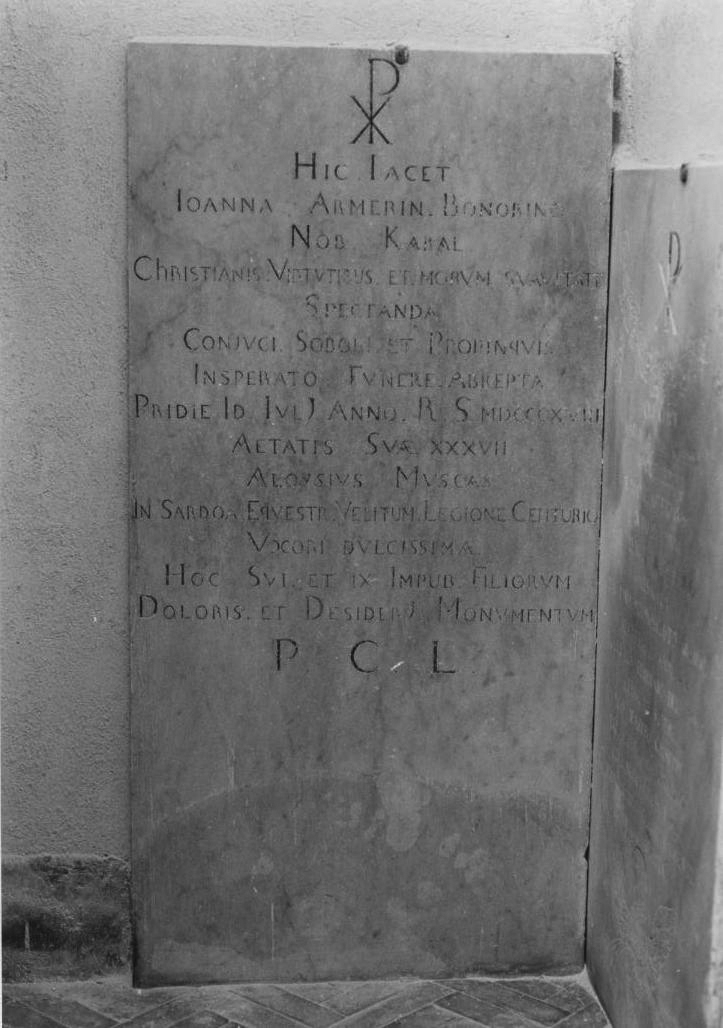 ☧
HIC . IACET
IOANNA . ARMERIN . BONORINO
NOB KARAL
CHRISTIANIS . VIRTVTIBVS . ET . MORVM SVAVITATE
SPECTANDA
CONJVGI . SOBOLI . ET PROPINQVIS
INSPERATO FVNERE . ABREPTA
PRIDIE ID . IVLJ ANNO . R . S MDCCCXVIII
AETATIS SVÆ XXXVII
ALOYSIVS MVSCAS
IN SARDOA EQVESTR . VELITUM . LEGIONE CENTURIO
VXORI DVLCISSIMÆ
HOC SVI . ET IX IMPUB . FILIORVM
DOLORIS . ET DESIDERIJ MONVMENTVM
P C L